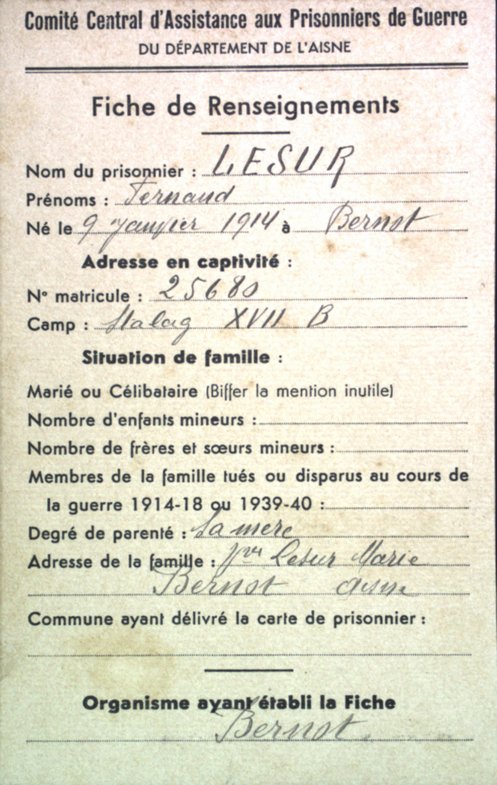 Comité Central d'Assistance aux Prisonniers de Guerre
DU DÉPARTEMENT DE L'AISNE
Fiche de Renseignements
Nom du prisonnier : LESUR
Prénoms : Fernand
Né le 9 Janvier 1914 à Bernot
Adresse en captivité :
N° matricule : 25680
Camp : Stalag XVII B
Situation de famille :
Marié ou Célibataire (Biffer la mention inutile)
Nombre d'enfants mineurs :
Nombre de frères et sœurs mineurs :
Membres de la famille tués ou disparus au cours de
la guerre 1914-18 ou 1939-40 :
Degré de parenté : Sa mère
Adresse de la famille : Lesur Marie
Bernot Aisne
Commune ayant délivré la carte de prisonnier :
Organisme ayant établi la Fiche
Bernot